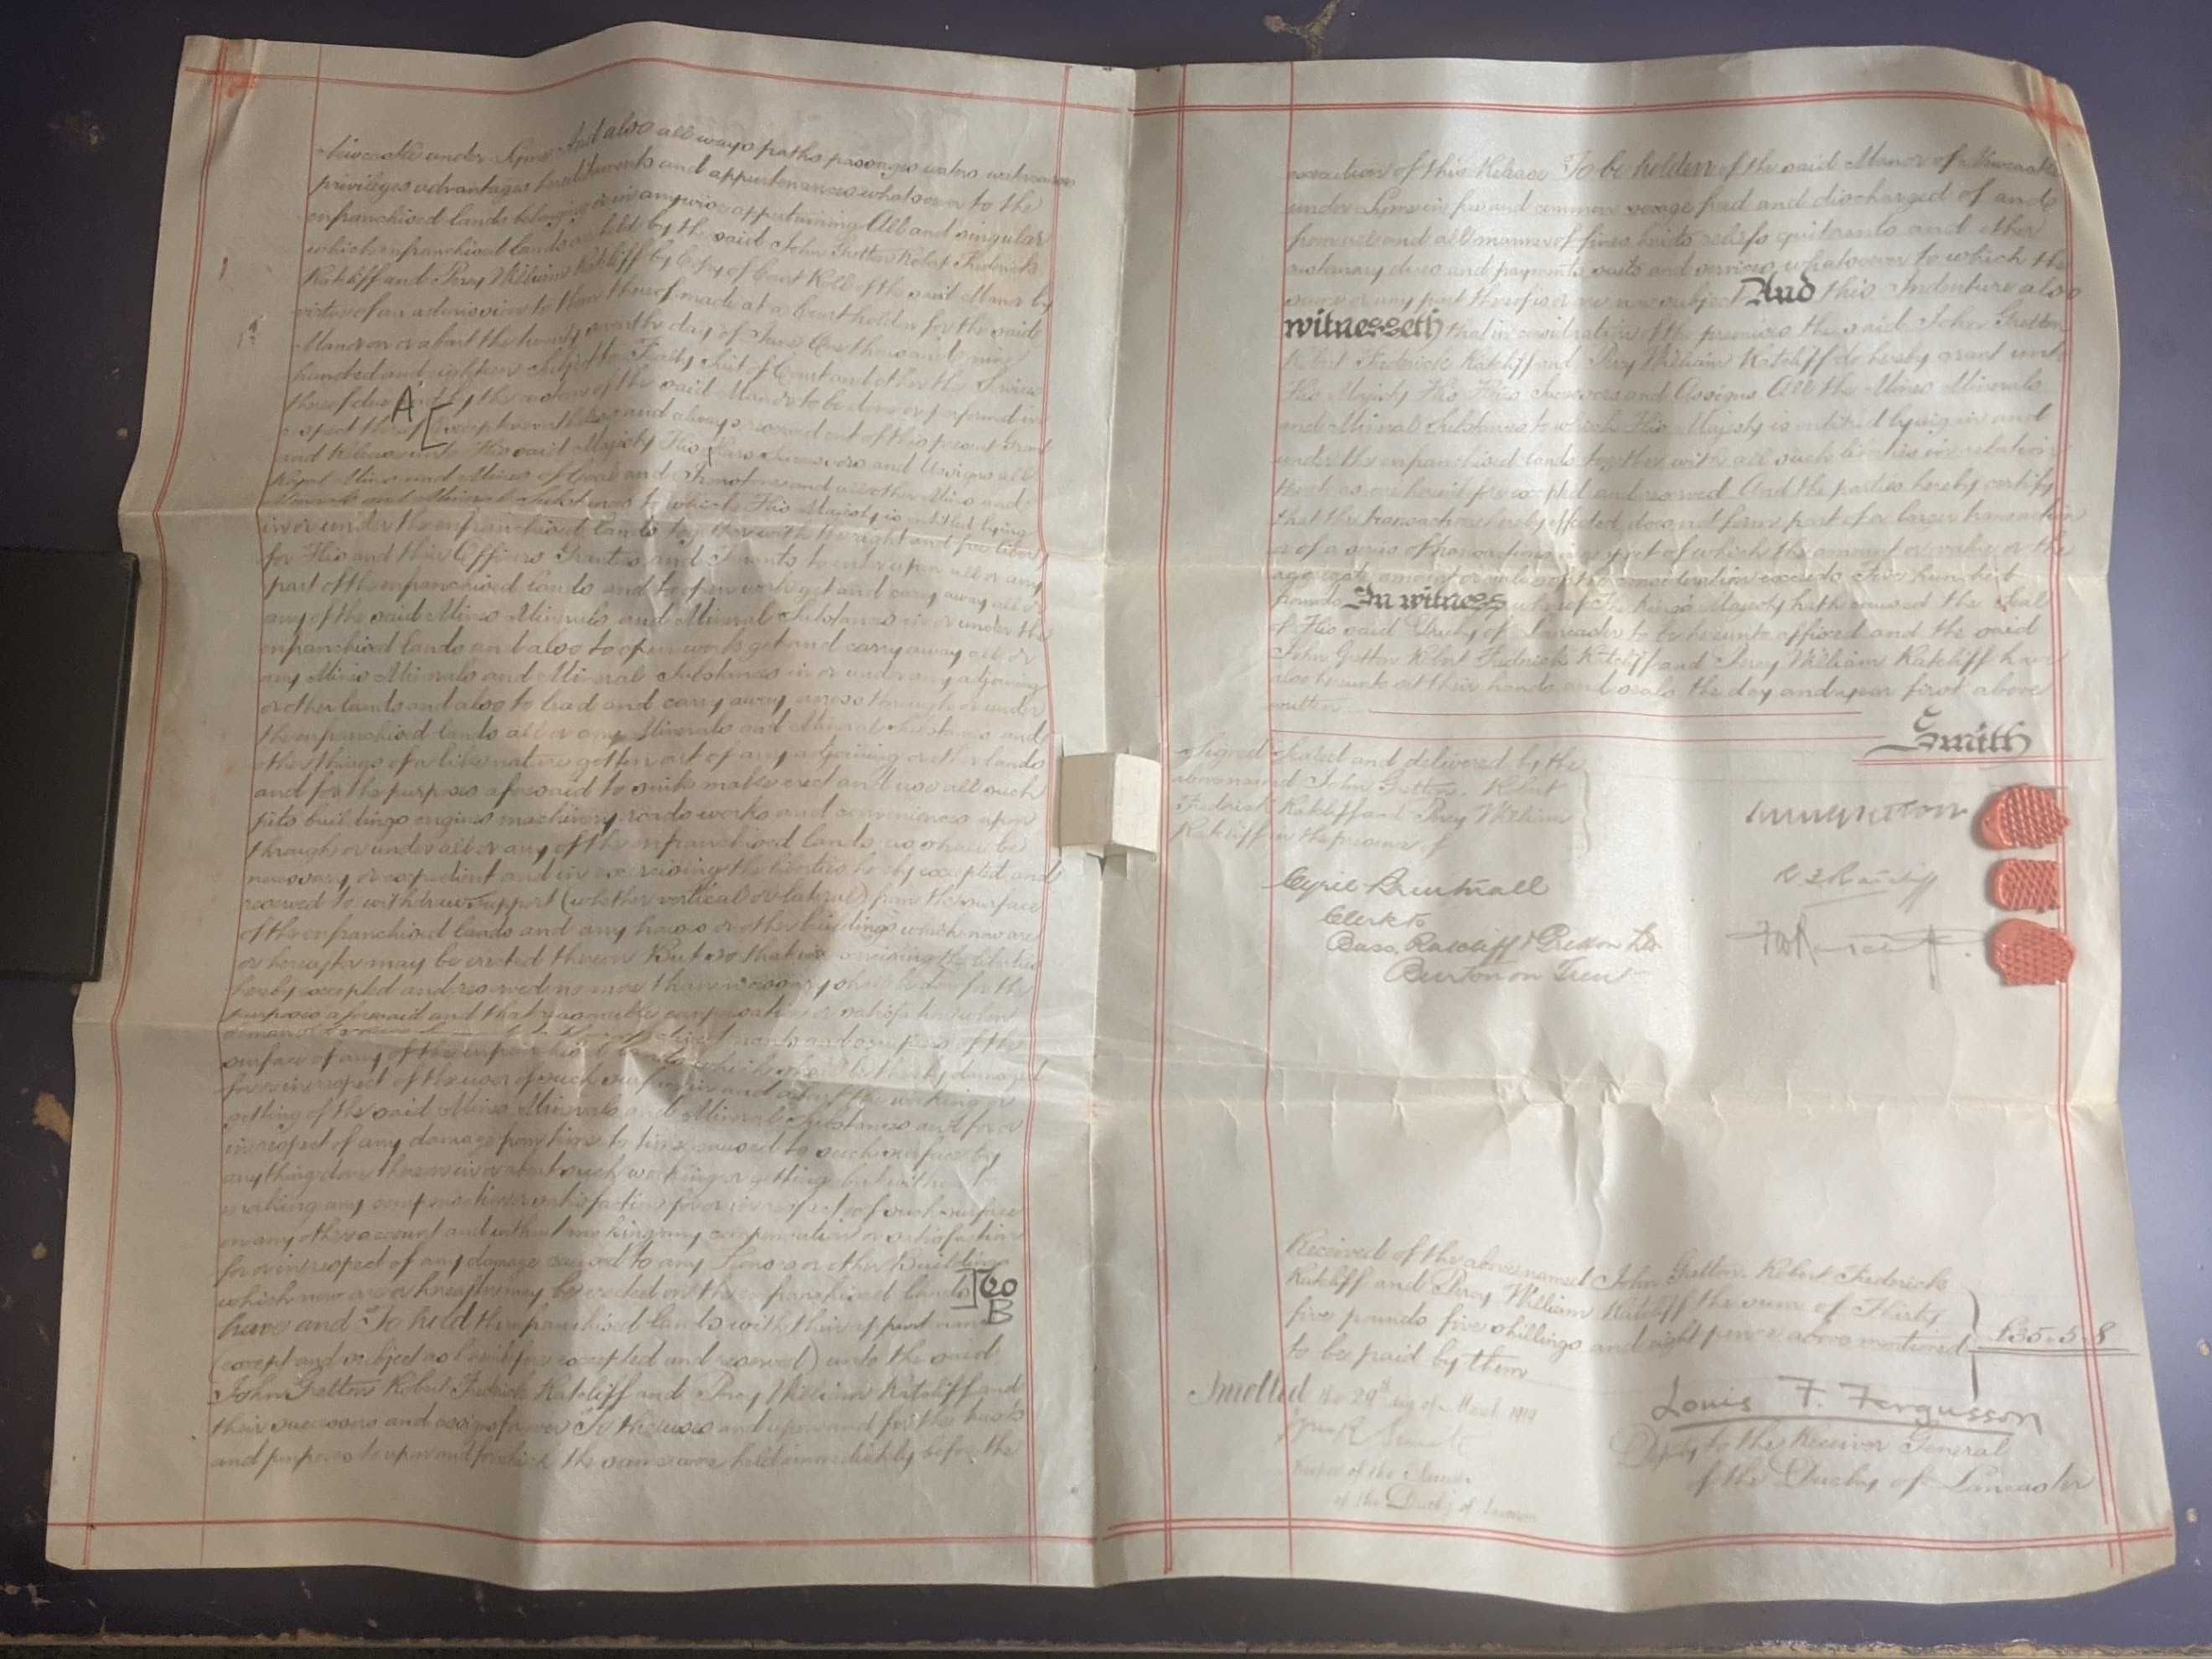 Newcastle under Lyme And also all ways paths passages waters watercourses
privileges advantages hereditaments and appurtenances whatsoever to the
enfranchised lands belonging or in anywise appertaining All and singular
which enfranchised lands are held by the said John Gretton Robert Frederick
Ratcliff and Percy William Ratcliff by Copy of Court Roll of the said Manor by
virtue of an admission to them thereof made at a Court holden for the said
Manor on or about the twenty seventh day of June One thousand nine
hundred and eighteen subject to Fealty Suit of Court and other the Services
therefor due and by the custom of the said Manor to be done or performed in
A
respect thereof [Except nevertheless and always reserved out of this present Grant
and Release unto His said Majesty His Heirs Successors and Assigns all
Royal Mines and Mines of Coal and Ironstone and all other Mines and
Minerals and Mineral Substances to which His Majesty is entitled lying
in or under the enfranchised lands together with the right and free liberty
for His and their Officers Grantees and Tenants to enter upon all or any
part of the enfranchised lands and to open work get and carry away all or
any of the said Mines Minerals and Mineral Substances in or under the
enfranchised lands and also to open work get and carry away all or
any Mines Minerals and Mineral Substances in or under any adjoining
or other lands and also to lead and carry away across through or under
the enfranchised lands all or any Minerals and Mineral Substances and
other things of a like nature gotten out of any adjoining or other lands
and for the purposes aforesaid to sink make erect and use all such
pits buildings engines machinery roads works and conveniences upon
through or under all or any of the enfranchised lands as shall be
necessary or expedient and in exercising the liberties hereby excepted and
reserved to withdraw support (whether vertical or lateral) from the surface
of the enfranchised lands and any houses or other buildings which now are
or hereafter may be erected thereon But so that in exercising the liberties
hereby excepted and reserved no more than necessary shall be done for the
purposes aforesaid and that reasonable compensation or satisfaction
tenants and occupiers of the
surface of any of the enfranchised lands which shall be thereby damaged
for or in respect of the user of such surface in and about the working or
getting of the said Mines Minerals and Mineral Substances and for or
in respect of any damage from time to time caused to such surface by
anything done thereon in or about such working or getting but without
making any compensation or satisfaction for or in respect of such surface
on any other account and without making any compensation or satisfaction
for or in respect of any damage caused to any Houses or other Buildings
which now are or hereafter may be erected on the enfranchised lands] To
B
have and To hold the enfranchised lands with their appurtenances
(except and subject as hereinbefore excepted and reserved) unto the said
John Gretton Robert Frederick Ratcliff and Percy William Ratcliff and
their successors and assigns for ever To the uses and upon and for the trusts
and purposes to upon and for which the same were held immediately before the
execution of this Release To be holden of the said Manor of Newcastle
under Lyme in free and common socage freed and discharged of and
from all and all manner of fines heriots reliefs quitrents and other
customary dues and payments suits and services whatsoever to which the
same or any part thereof is or are now subject And this Indenture also
witnesseth that in consideration of the premises the said John Gretton
Robert Frederick Ratcliff and Percy William Ratcliff do hereby grant unto
His Majesty His Heirs Successors and Assigns All the Mines Minerals
and Mineral Substances to which His Majesty is entitled lying in and
under the enfranchised lands together with all such liberties in relation
thereto as are hereinbefore excepted and reserved And the parties hereby certify
that the transaction hereby effected does not form part of a larger transaction
or of a series of transactions in respect of which the amount or value or the
aggregate amount or value of the consideration exceeds Five hundred
pounds In witness whereof The King's Majesty hath caused the Seal
of His said Duchy of Lancaster to be hereunto affixed and the said
John Gretton Robert Frederick Ratcliff and Percy William Ratcliff have
also hereunto set their hands and seals the day and year first above
written
Smith
Signed Sealed and delivered by the
abovenamed John Gretton, Robert
Frederick Ratcliff and Percy William
Ratcliff in the presence of
Cyril Brentnall
Clerk to
Bass, Ratcliff & Gretton Ltd
Burton on Trent
John Gretton
R F Ratcliff
P W Ratcliff
Received of the abovenamed John Gretton Robert Frederick
Ratcliff and Percy William Ratcliff the sum of Thirty
five pounds five shillings and eight pence above mentioned
to be paid by them
£35.5.8
Louis F. Fergusson
Deputy to the Receiver General
of the Duchy of Lancaster
Inrolled the 29th day of March 1919
Keeper of the
of the Duchy of Lancaster